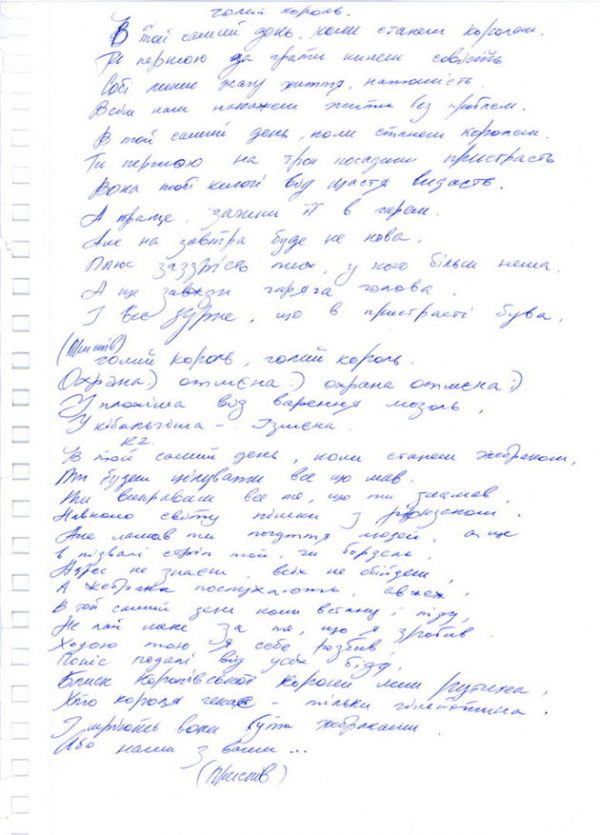 голий король.
В той самий день, коли станеш королем.
Ти першою за грати кинеш совість
Собі лиши жагу життя, натомість
Всім нам накажеш жити без проблем.
В той самий день, коли станеш королем.
Ти першою на трон посадиш пристрасть
Вона тобі килогі від щастя видасть.
А краще, зачини її в гарем.
Але на завтра буде не нова.
Плюс заздрість тих, у кого більш нема.
А ще завжди гаряча голова.
І все дурне, що в пристрасті бува,
(Приспів)
голий король, голий король.
Охрана:) отмєна:) охрана отмєна:)
У від варення мозоль,
У – Ізмєна.
к2.
В той самий день, коли станеш жебраком,
Ти будеш цінувати все що мав.
Ти виправиш все те, що ти зламав,
Навколо світу пішки з рюкзаком.
Але ламав ти почуття людей, а ще
в підвалі стріп той, чи бордель,
Адрес не знаєш, всіх не обійдеш,
А жебрака послухають, авжеж,
В той самий день коли встану і піду,
Не лай мене за те, що я зробив
Ходою тою я себе розбив,
Поніс подалі від усіх біду.
Блиск королівської корони лиш рутина,
Хто короля чекає – тільки гільйотина.
І мріють вони бути жебраками.
Або нами з вами...
(Приспів)